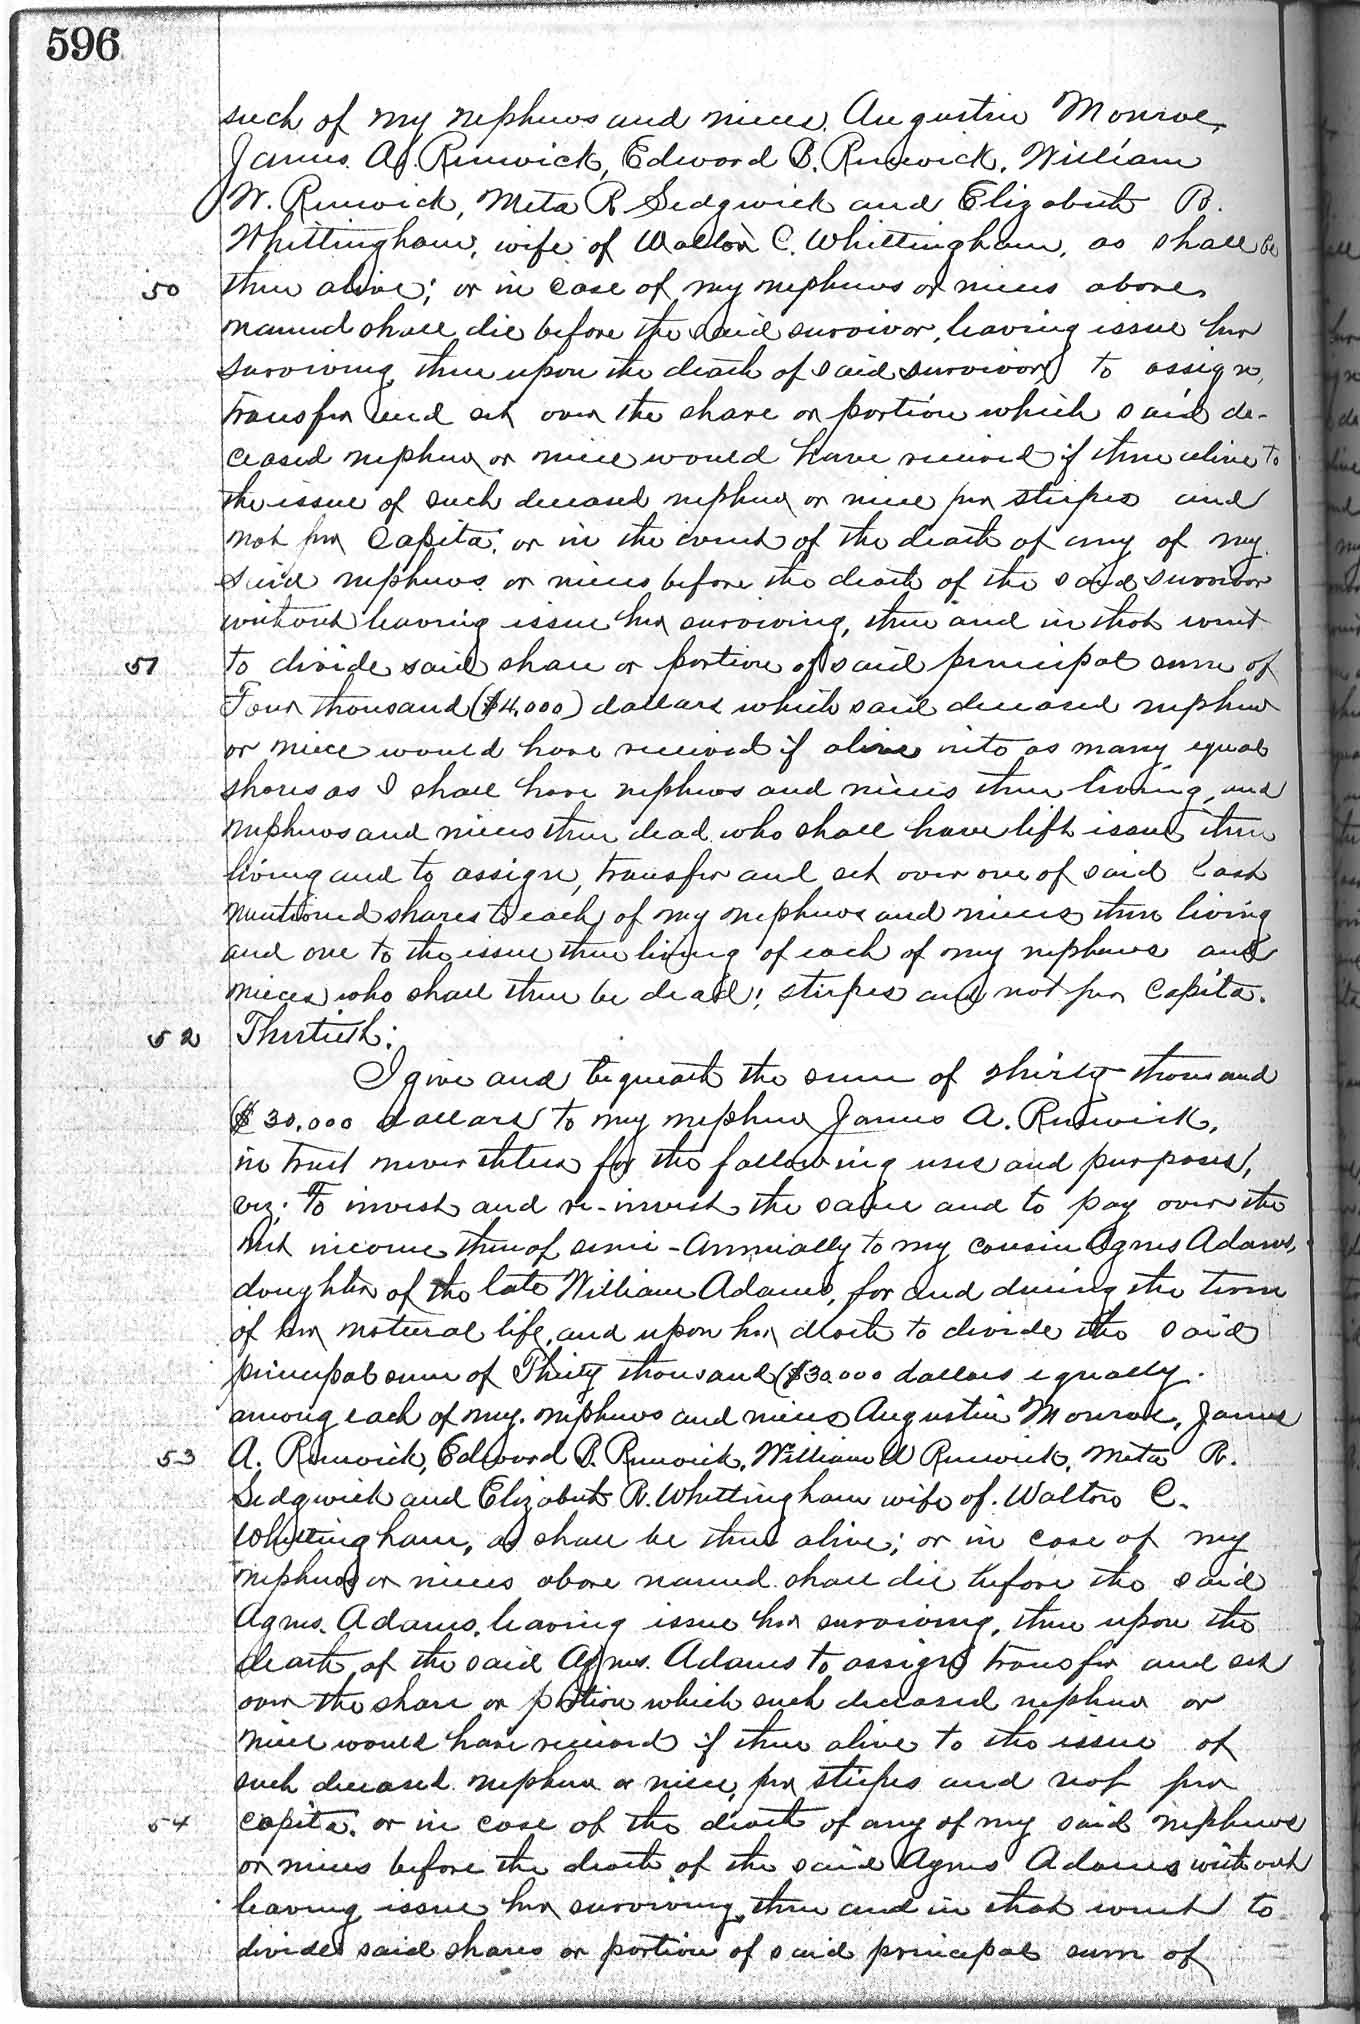 596
such of my nephews and nieces, Augustin Monroe,
James A. Renwick, Edward B. Renwick, William
W. Renwick, Meta R Sedgwick and Elizabeth R.
Whittingham, wife of Walton C. Whittingham, as shall be
50 then alive; or in case of my nephews or nieces above
named shall die before the said survivor, leaving issue her
surviving, then upon the death of said survivor, to assign,
transfer and set over the share or portion which said de-
ceased nephew or niece would have received if then alive to
the issue of such deceased nephew or niece per stirpes and
not per Capita; or in the event of the death of any of my
said nephews or nieces before the death of the said survivor
without leaving issue her surviving, then and in that event
51 to divide said share or portion of said principal sum of
Four thousand ($4,000) dollars which said deceased nephew
or niece would have received if alive into as many equal
shares as I shall have nephews and nieces then living, and
nephews and nieces then dead who shall have left issue then
living and to assign, transfer and set over one of said last
mentioned shares to each of my nephews and nieces then living
and one to the issue then living of each of my nephews and
nieces who shall then be dead; stirpes and not per Capita.
52 Thirtieth:
I give and bequeath the sum of thirty thousand
($30,000 dollars to my nephew James A. Renwick,
in trust nevertheless for the following uses and purposes,
viz: To invest and re-invest the same and to pay over the
net income thereof semi-Annually to my cousin Agnes Adams,
daughter of the late William Adams, for and during the term
of her natural life, and upon her death to divide the said
principal sum of Thirty thousand ($30,000 dollars equally
among each of my nephews and nieces Augustin Monroe, James
53 A. Renwick, Edward B. Renwick, William W Renwick, Meta R.
Sedgwick and Elizabeth R. Whittingham wife of Walton C.
Whittingham, as shall be then alive; or in case of my
nephews or nieces above named shall die before the said
Agnes Adams, leaving issue her surviving, then upon the
death of the said Agnes Adams to assign, transfer and set
over the share or portion which such deceased nephew or
niece would have received if then alive to the issue of
such deceased nephew or niece, per stirpes and not per
54 capita; or in case of the death of any of my said nephews
or nieces before the death of the said Agnes Adams without
leaving issue her surviving, then and in that event to
divide said shares or portion of said principal sum of